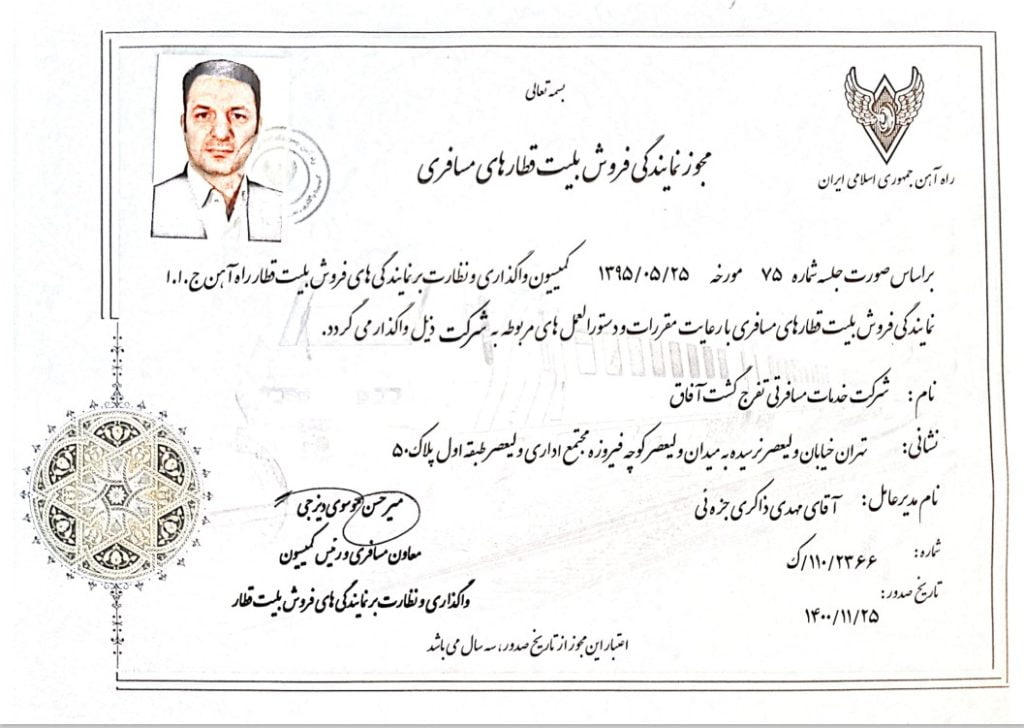 بسمه تعالی
راه آهن جمهوری اسلامی ایران
مجوز نمایندگی فروش بلیت قطارهای مسافری
براساس صورت جلسه شماره ۷۵ مورخه ۱۳۹۵/۰۵/۲۵ کمیسیون واگذاری و نظارت بر نمایندگی های فروش بلیت قطار راه آهن ج.ا.ا
نمایندگی فروش بلیت قطارهای مسافری با رعایت مقررات و دستورالعمل های مربوطه به شرکت ذیل واگذار می گردد.
نام: شرکت خدمات مسافرتی تفرج گشت آفاق
نشانی: تهران خیابان ولیعصر نرسیده به میدان ولیعصر کوچه فیروزه مجتمع اداری ولیعصر طبقه اول پلاک ۵۰
نام مدیرعامل: آقای مهدی ذاکری جزه نی
شماره: ۱۱۰/۲۳۶۶/ک
تاریخ صدور:
۱۴۰۰/۱۱/۲۵
میرحسن موسوی دیزجی
معاون مسافری و رئیس کمیسیون
واگذاری و نظارت بر نمایندگی های فروش بلیت قطار
اعتبار این مجوز از تاریخ صدور، سه سال می باشد